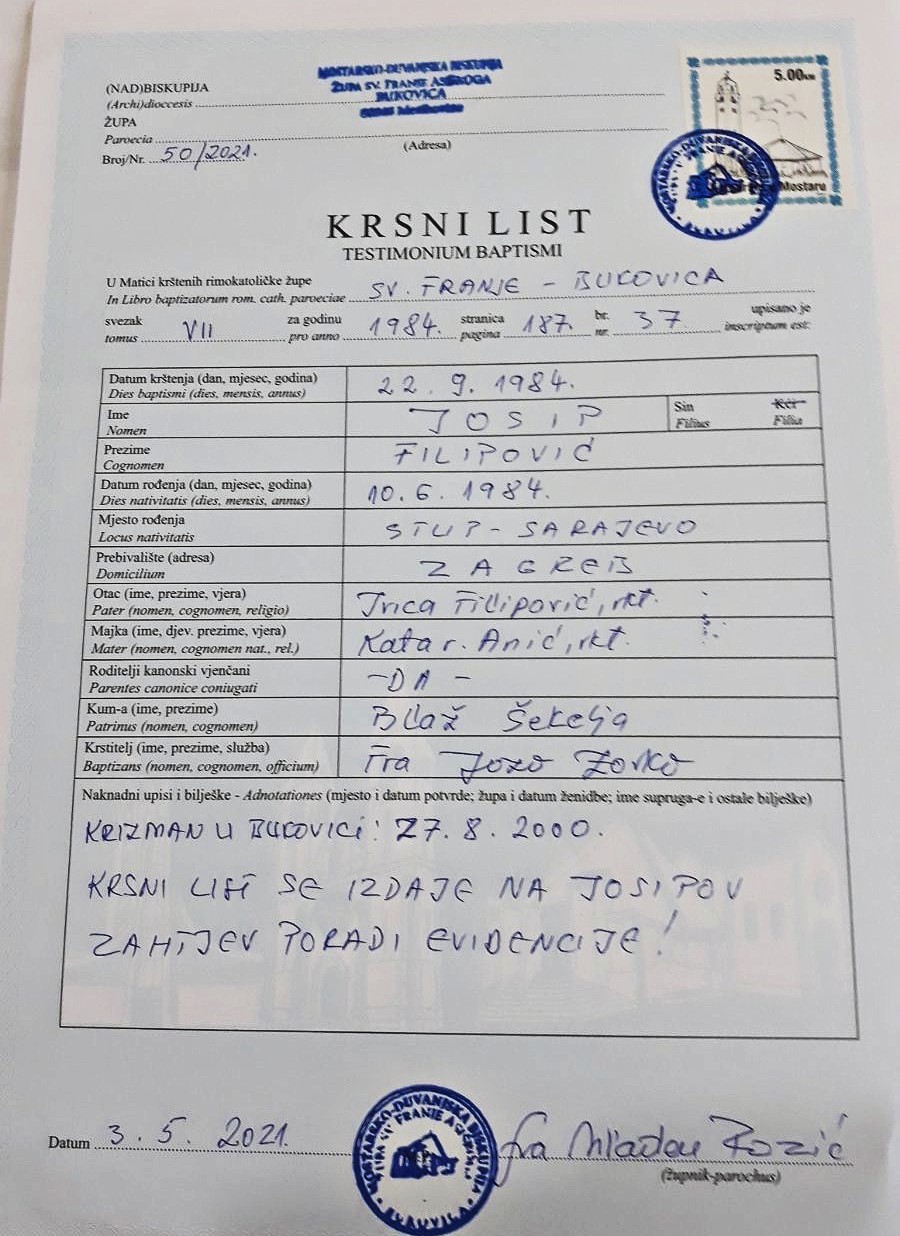 (NAD)BISKUPIJA
(Archi)dioccesis
MOSTARSKO-DUVANJSKA BISKUPIJA
ŽUPA SV. FRANJE ASIŠKOGA
BUKOVICA
ŽUPA
Paroecia
(Adresa)
Broj/Nr. 50/2021.
5.00 KM
Mostaru
KRSNI LIST
TESTIMONIUM BAPTISMI
U Matici krštenih rimokatoličke župe
In Libro baptizatorum rom. cath. paroeciae SV. FRANJE - BUKOVICA
svezak za godinu stranica br. upisano je
tomus VII pro anno 1984. pagina 187. nr. 37. inscriptum est:
Datum krštenja (dan, mjesec, godina)
Dies baptismi (dies, mensis, annus) 22. 9. 1984.
Ime Sin Kći
Nomen JOSIP Filius Filia
Prezime
Cognomen FILIPOVIĆ
Datum rođenja (dan, mjesec, godina)
Dies nativitatis (dies, mensis, annus) 10. 6. 1984.
Mjesto rođenja
Locus nativitatis STUP - SARAJEVO
Prebivalište (adresa)
Domicilium ZAGREB
Otac (ime, prezime, vjera)
Pater (nomen, cognomen, religio) Ivica Filipović, rkt.
Majka (ime, djev. prezime, vjera)
Mater (nomen, cognomen nat., rel.) Kata r. Anić, rkt.
Roditelji kanonski vjenčani
Parentes canonice coniugati - DA -
Kum-a (ime, prezime)
Patrinus (nomen, cognomen) Blaž Šekelja
Krstitelj (ime, prezime, služba)
Baptizans (nomen, cognomen, officium) Fra Jozo Zorko
Naknadni upisi i bilješke - Adnotationes (mjesto i datum potvrde; župa i datum ženidbe; ime supruga-e i ostale bilješke)
KRIZMAN U BUKOVICI: 27. 8. 2000.
KRSNI LIST SE IZDAJE NA JOSIPOV
ZAHTJEV PORADI EVIDENCIJE!
Datum 3. 5. 2021.
MOSTARSKO-DUVANJSKA BISKUPIJA
BUKOVICA
fra Mladen Rozić
(župnik-parochus)